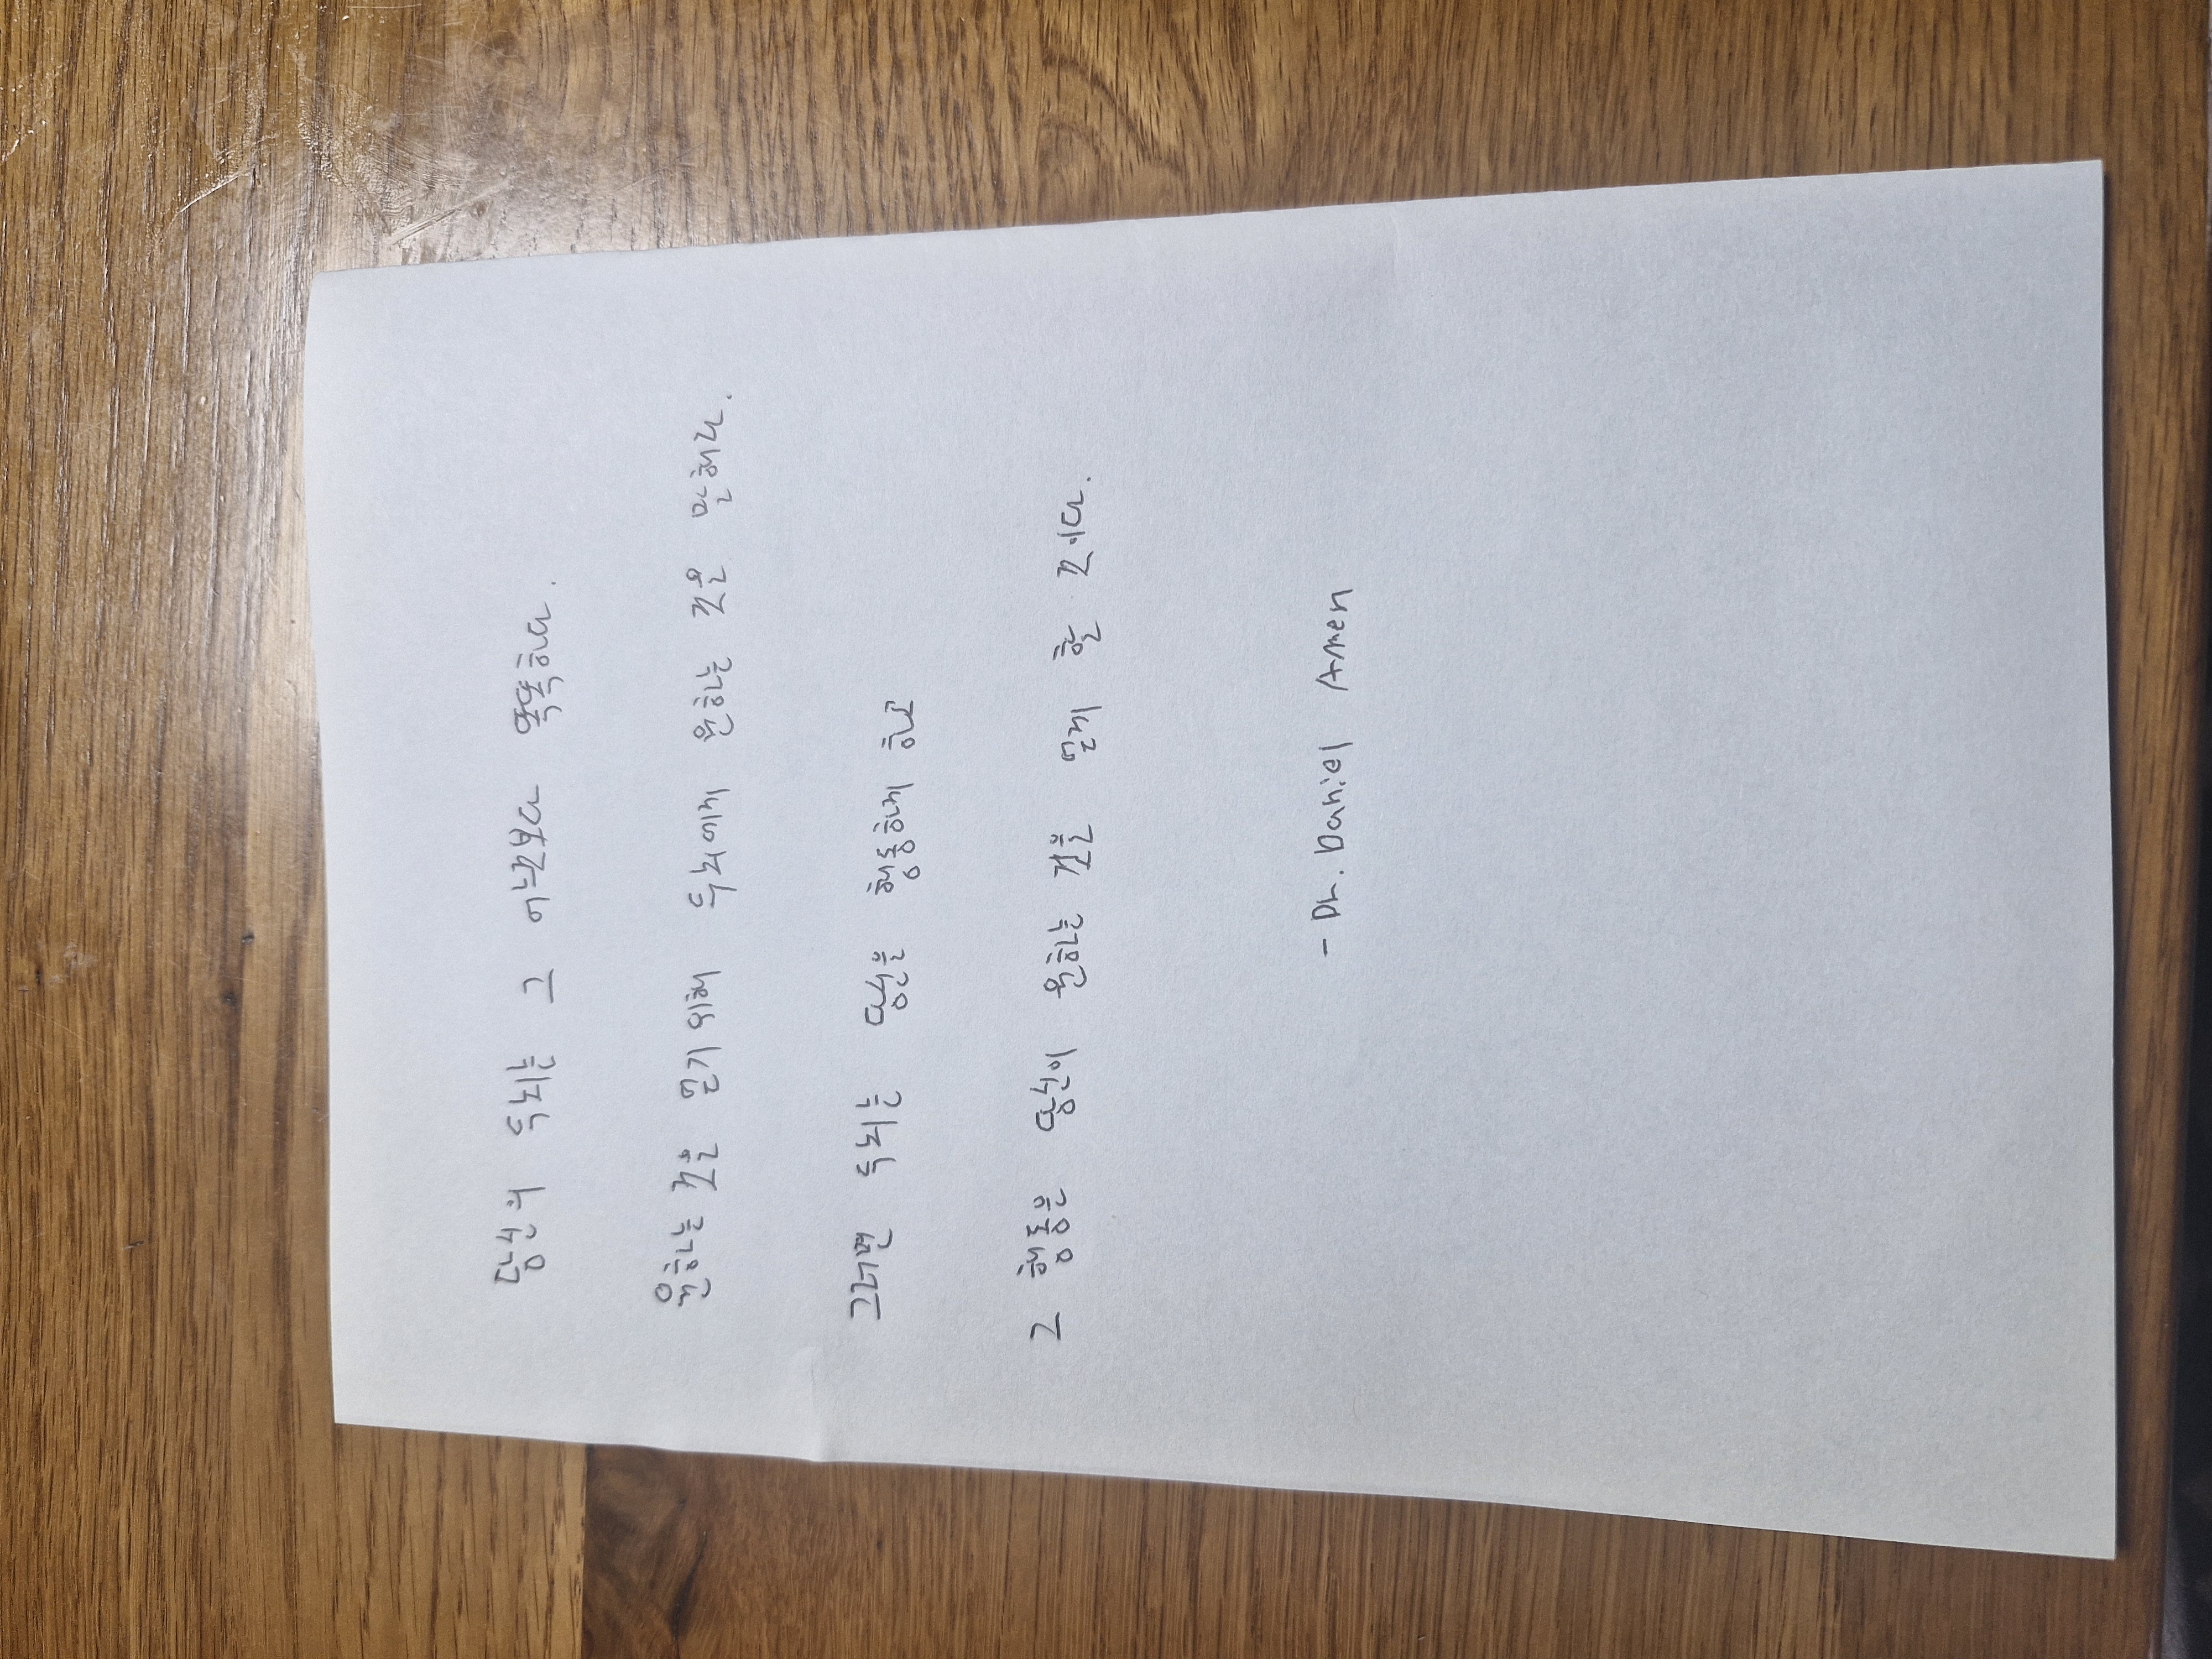 당신의 두뇌는 그 누구보다 똑똑하다.
원하는 것을 얻기 위해 두뇌에게 원하는 것을 말해라.
그러면 두뇌는 당신을 행동하게 하고
그 행동은 당신이 원하는 것을 얻게 할 것이다.
- Dr. Daniel Amen